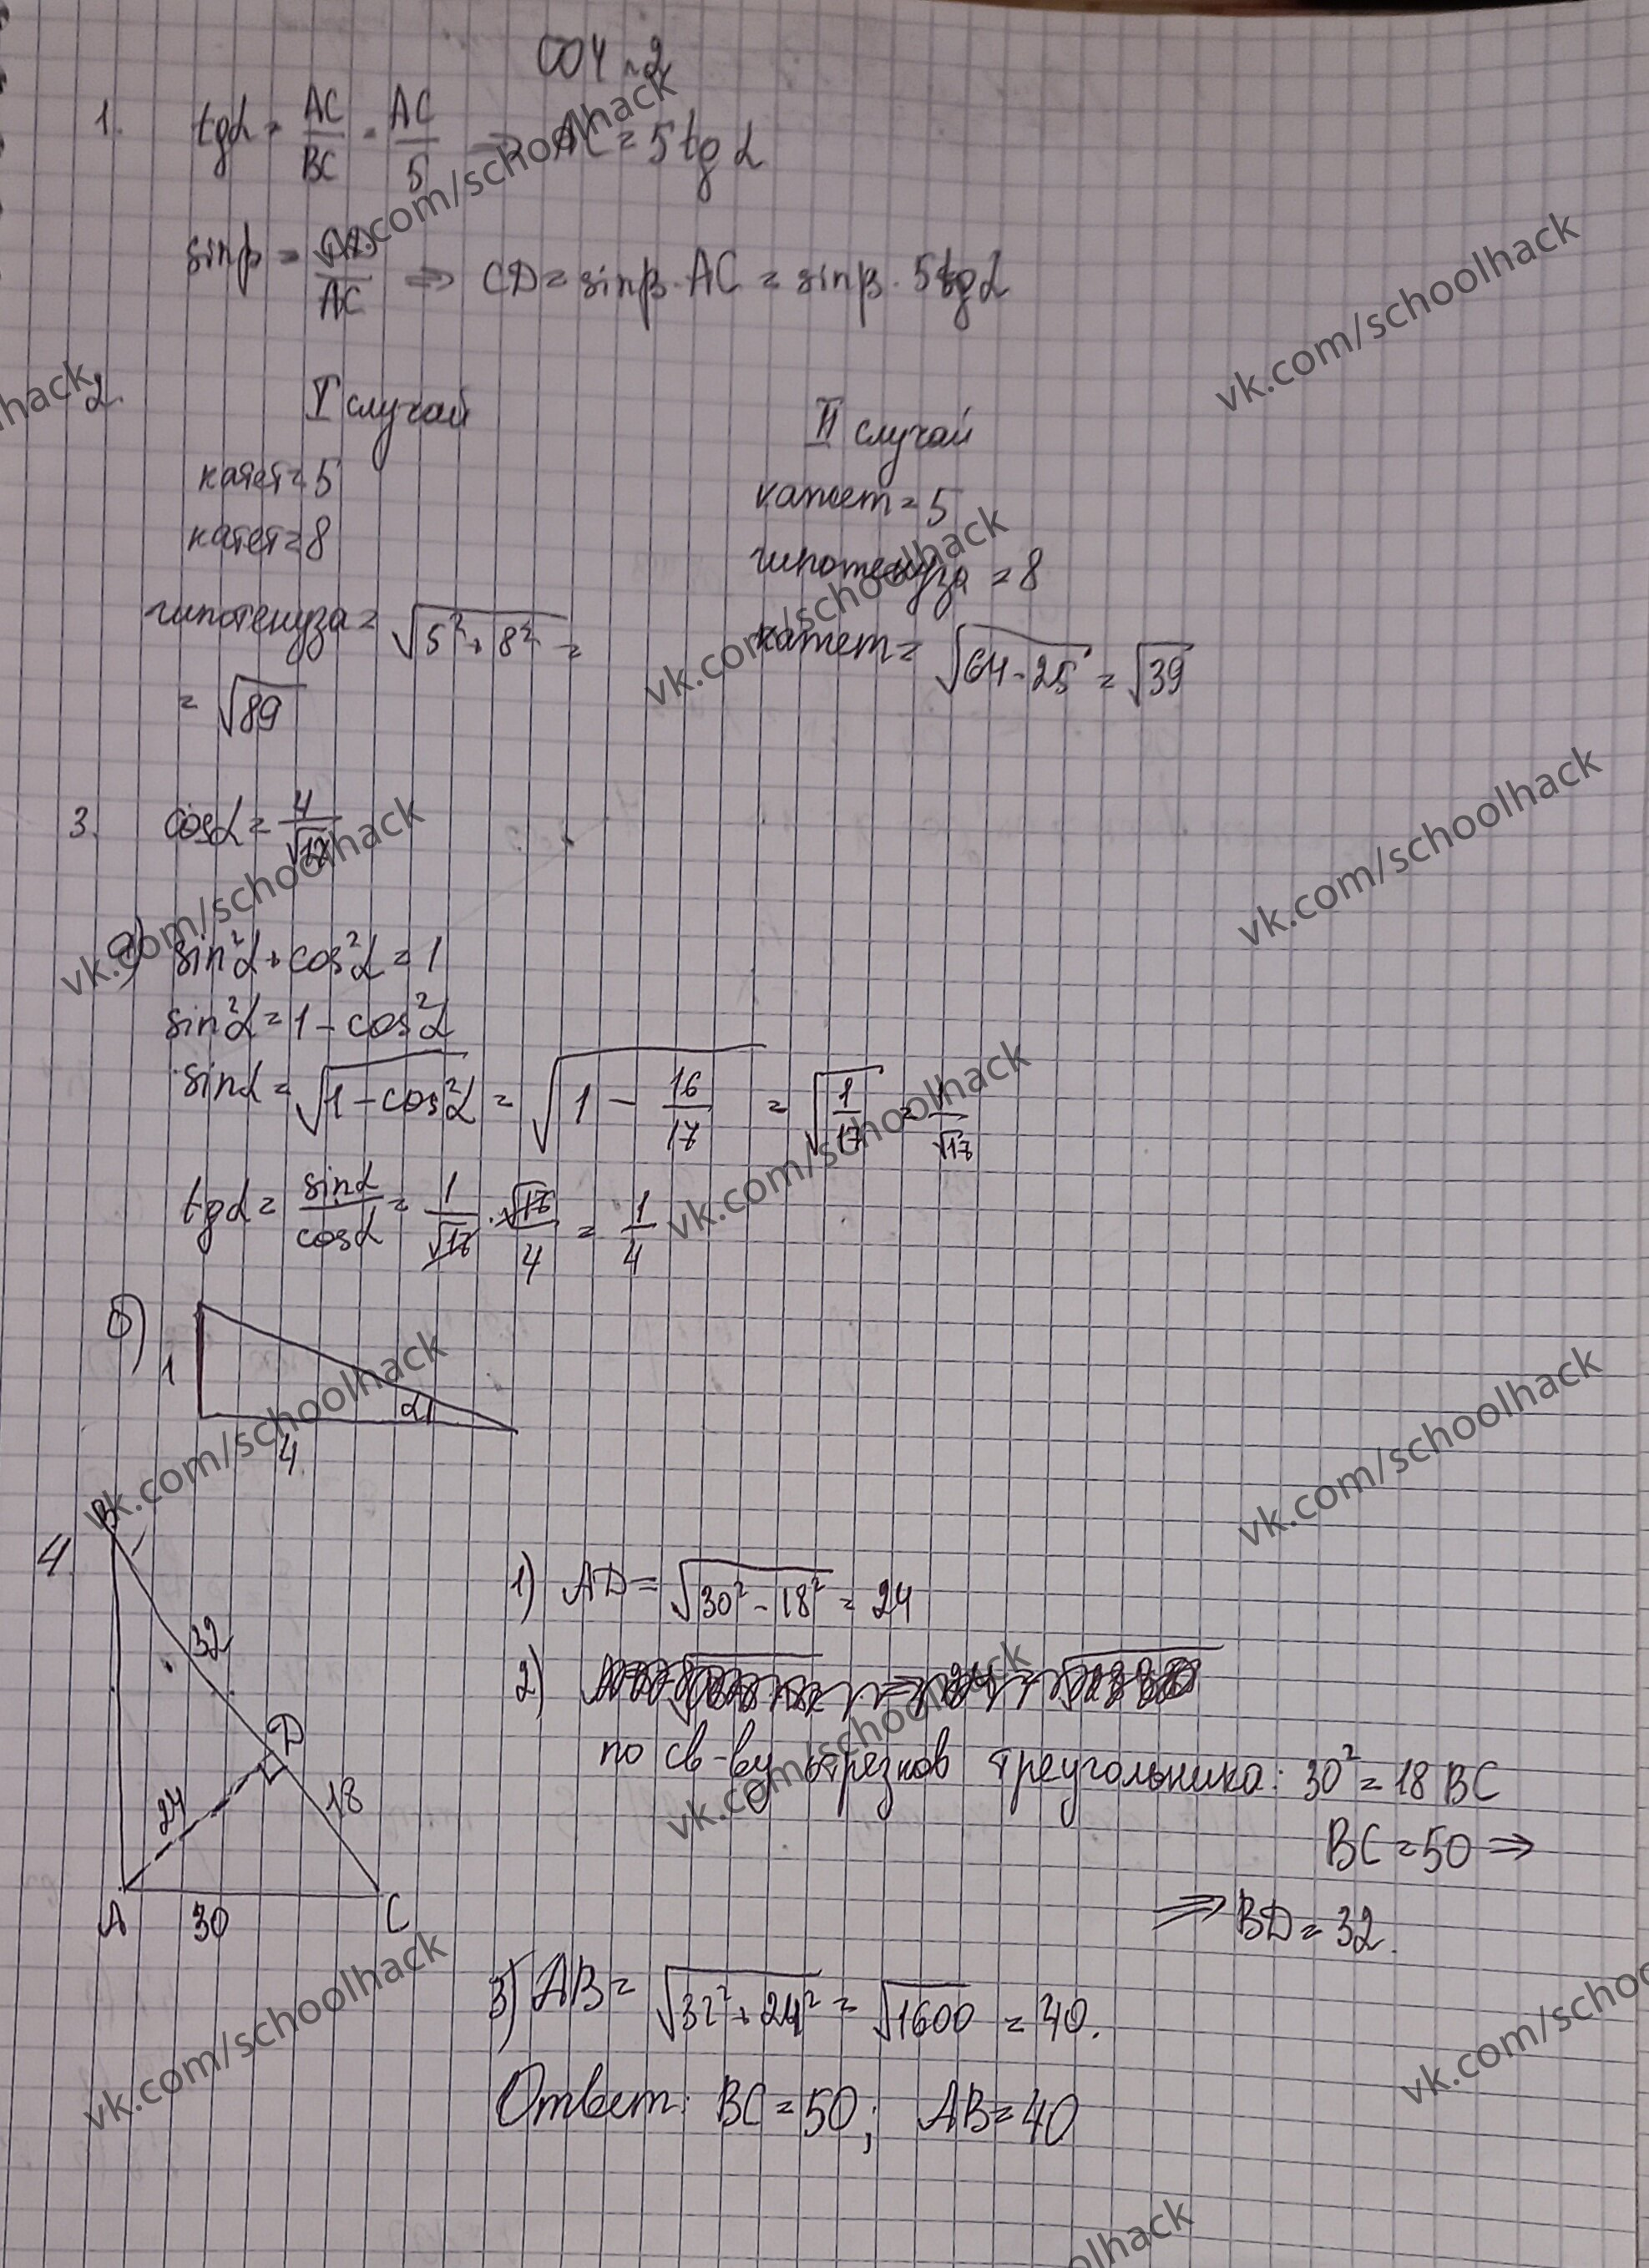 СОЧ ~2
1. tgα = AC/BC = AC/5 => AC = 5tgα
sinβ = CD/AC => CD = sinβ·AC = sinβ·5tgα
2. I случай
катет = 5
катет = 8
гипотенуза = √(5² + 8²) =
= √89
II случай
катет = 5
гипотенуза = 8
катет = √(64-25) = √39
3. cosα = 4/√17
а) sin²α + cos²α = 1
sin²α = 1 - cos²α
sinα = √(1 - cos²α) = √(1 - 16/17) = √(1/17) = 1/√17
tgα = sinα/cosα = 1/√17 · √17/4 = 1/4
б)
1
α
4
4.
B
32
D
24
18
A 30 C
1) AD = √(30² - 18²) = 24
2)
по св-ву отрезков треугольника: 30² = 18 BC
BC = 50 =>
=> BD = 32.
3) AB = √(32² + 24²) = √1600 = 40.
Ответ: BC = 50; AB = 40
vk.com/schoolhack
vk.com/schoolhack
hack
vk.com/schoolhack
vk.com/schoolhack
vk.com/schoolhack
vk.com/schoolhack
vk.com/schoolhack
vk.com/schoolhack
vk.com/schoolhack
vk.com/schoolhack
vk.com/schoo
olhack